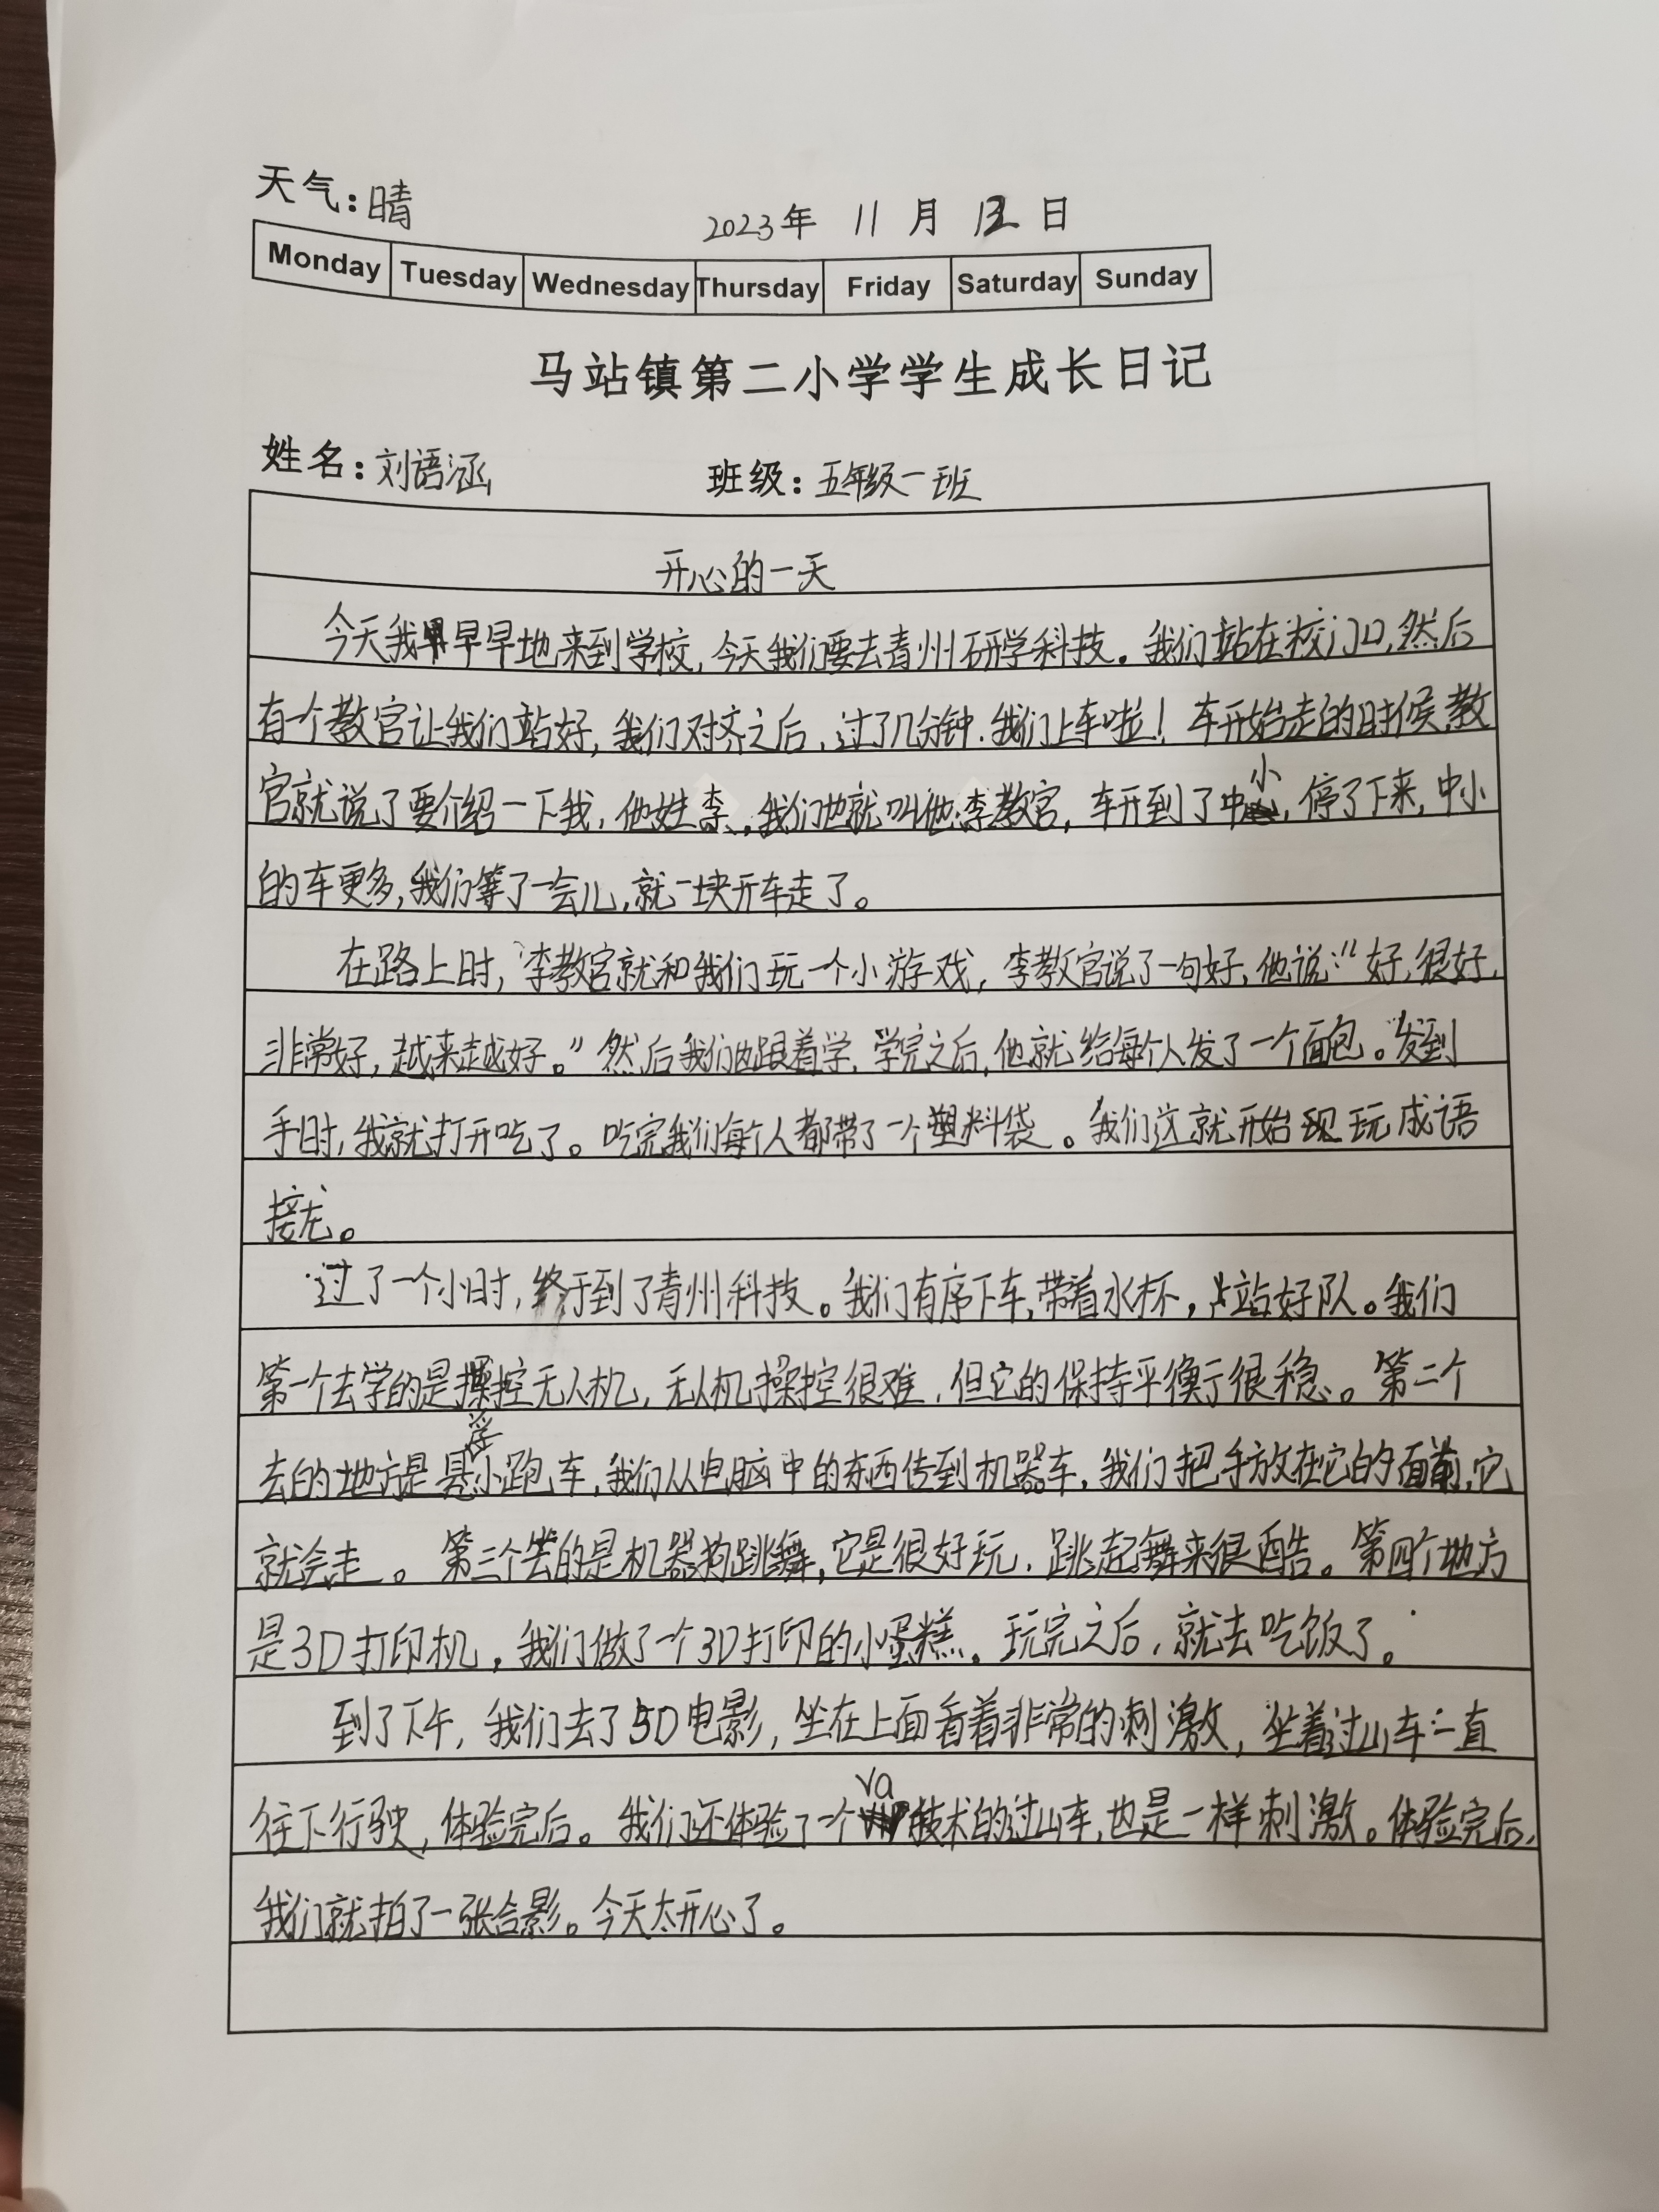 天气:晴
2023年 11月 12日
Monday Tuesday Wednesday Thursday Friday Saturday Sunday
马站镇第二小学学生成长日记
姓名:刘语涵 班级:五年级一班
开心的一天
今天我早早地来到学校,今天我们要去青州研学科技。我们站在校门口,然后
有一个教官让我们站好,我们对齐之后,过了几分钟.我们上车啦!车开始走的时候,教
官就说了要介绍一下我,他姓李,我们也就叫他李教官,车开到了中小,停了下来,中小
的车更多,我们等了一会儿,就一块开车走了。
在路上时,李教官就和我们玩一个小游戏,李教官说了一句好,他说:“好,很好,
非常好,越来越好。”然后我们也跟着学,学完之后,他就给每个人发了一个面包。发到
手时,我就打开吃了。吃完我们每个人都带了一个塑料袋。我们这就开始玩成语
接龙。
过了一个小时,终于到了青州科技。我们有序下车,带着水杯,站好队。我们
第一个去学的是操控无人机,无人机操控很难,但它的保持平衡很稳。第二个
去的地方是悬浮小跑车,我们从电脑中的东西传到机器车,我们把手放在它的面前,它
就会走。第三个去的是机器狗跳舞,它是很好玩,跳起舞来很酷。第四个地方
是3D打印机,我们做了一个3D打印的小蛋糕。玩完之后,就去吃饭了。
到了下午,我们去了5D电影,坐在上面看着非常的刺激,坐着过山车一直
往下行驶,体验完后。我们还体验了一个va技术的过山车,也是一样刺激。体验完后,
我们就拍了一张合影。今天太开心了。